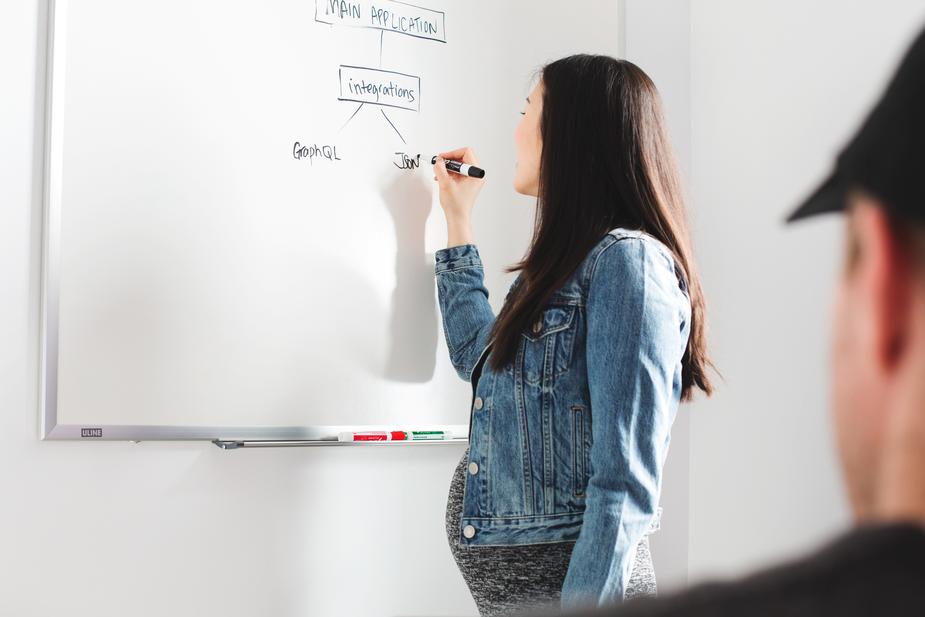 MAIN APPLICATION
integrations
GraphQL
JSON
ULINE